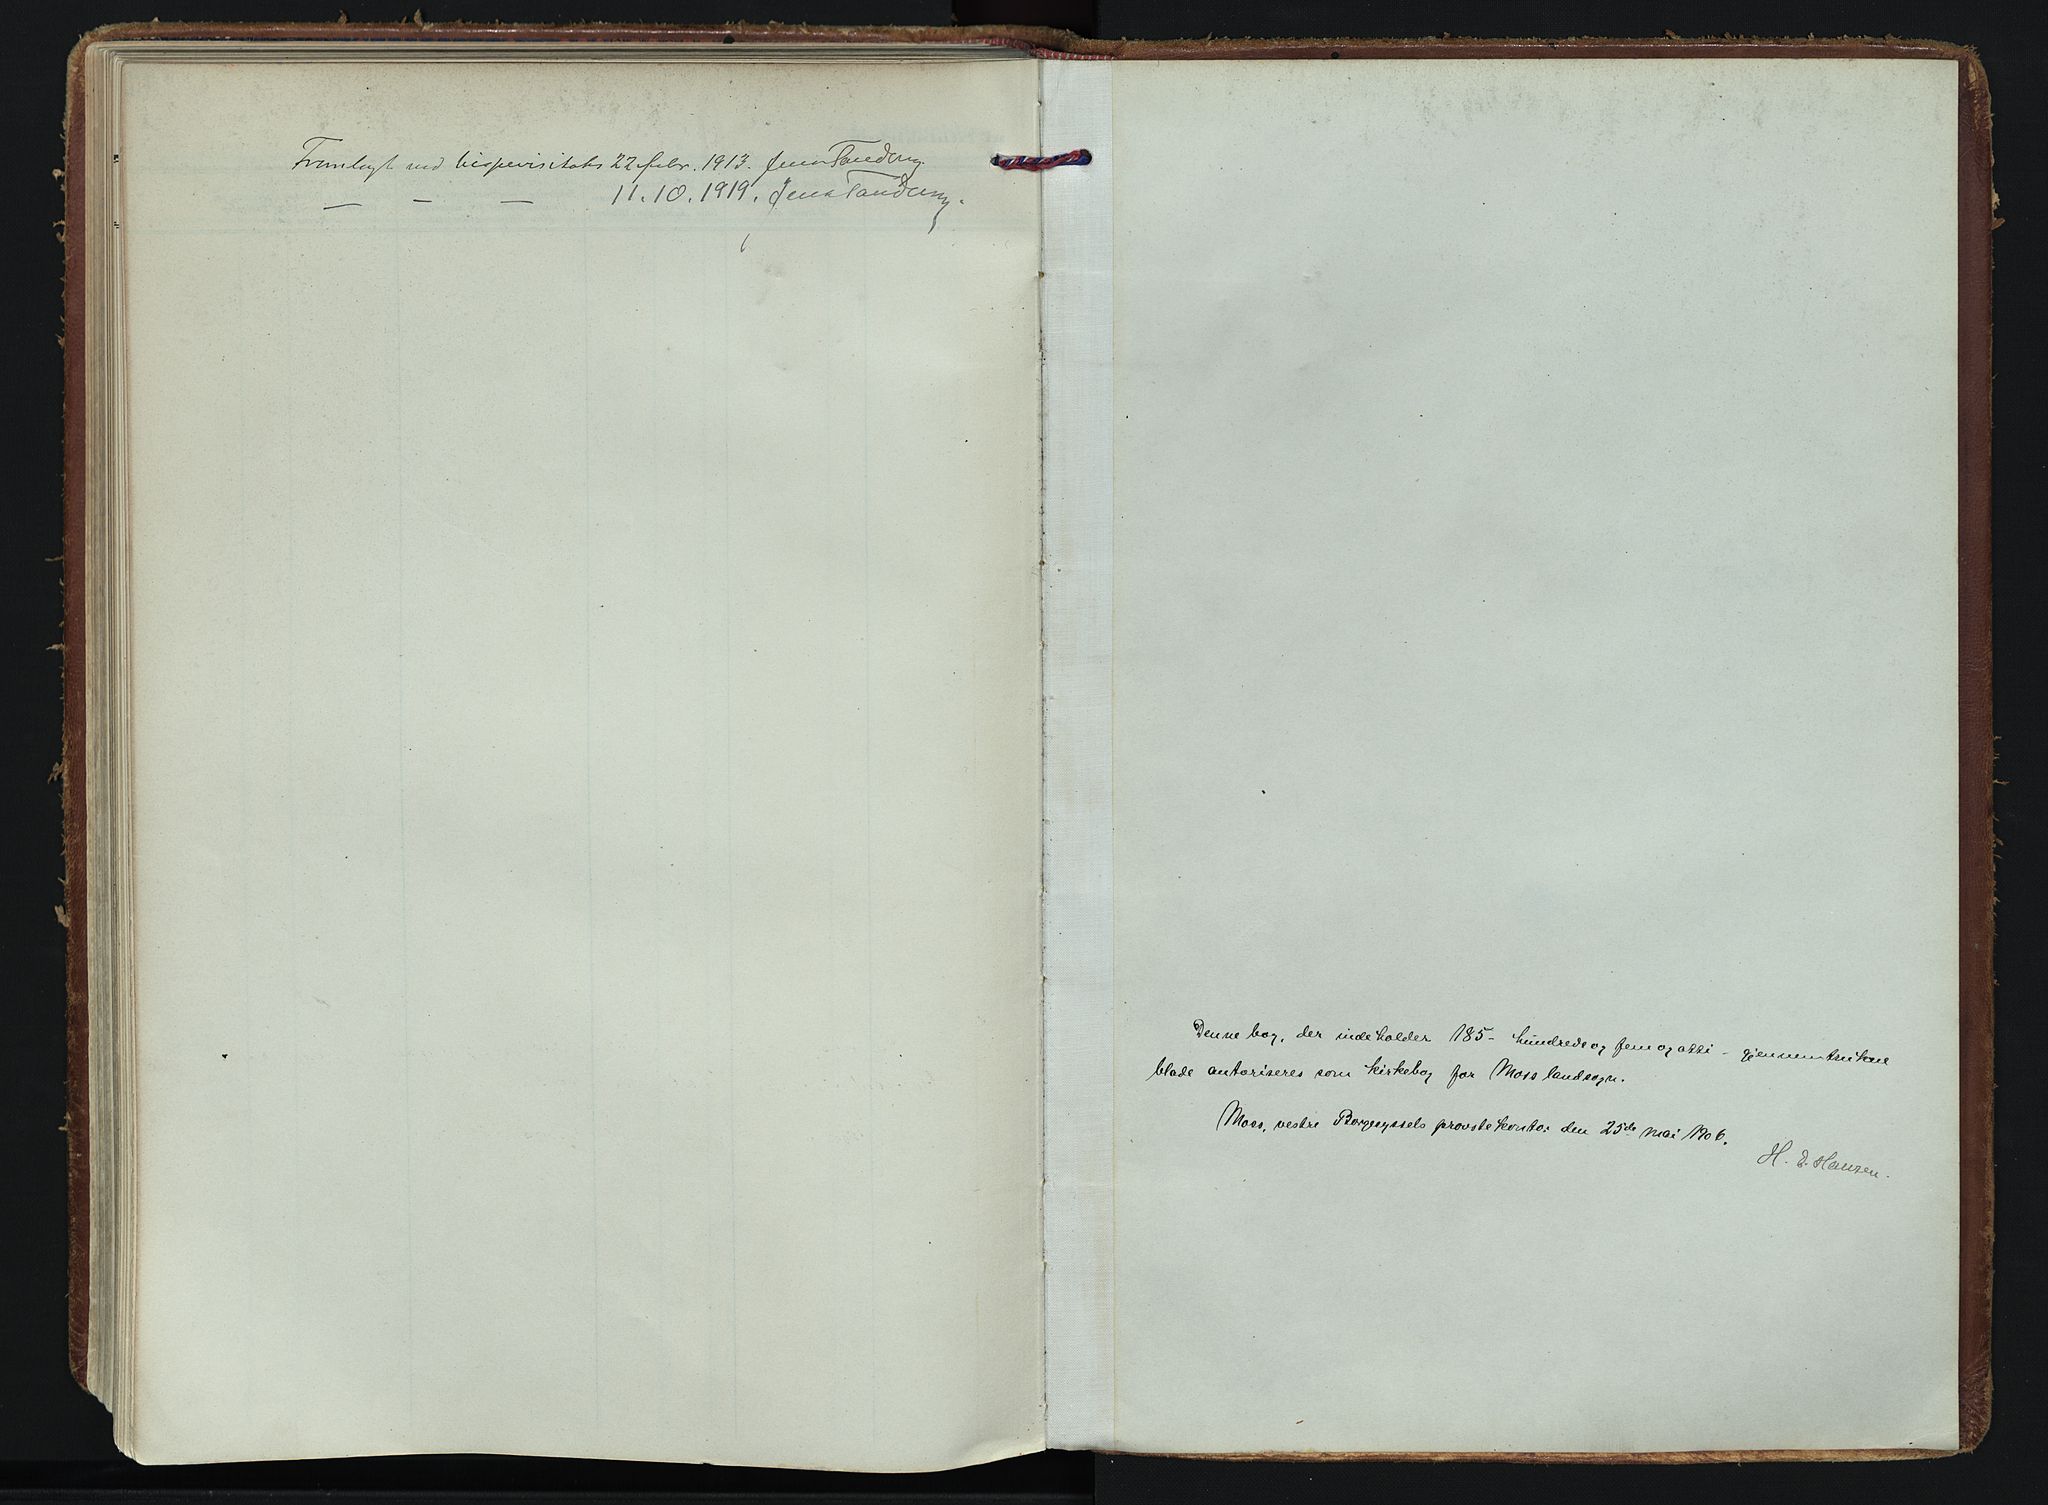 Fremlagt ved bispevisitats 22 febr. 1913. Jens Tandberg.
— — — 11.10.1919. Jens Tandberg.
Denne bog, der indeholder 185 - hundrede og femogotti - gjennemtrukne
blade autoriseres som kirkebog for Moss landsogn.
Moss, vestre Borgesyssels provstekontor den 25de mai 1906.
H. E. Hansen.